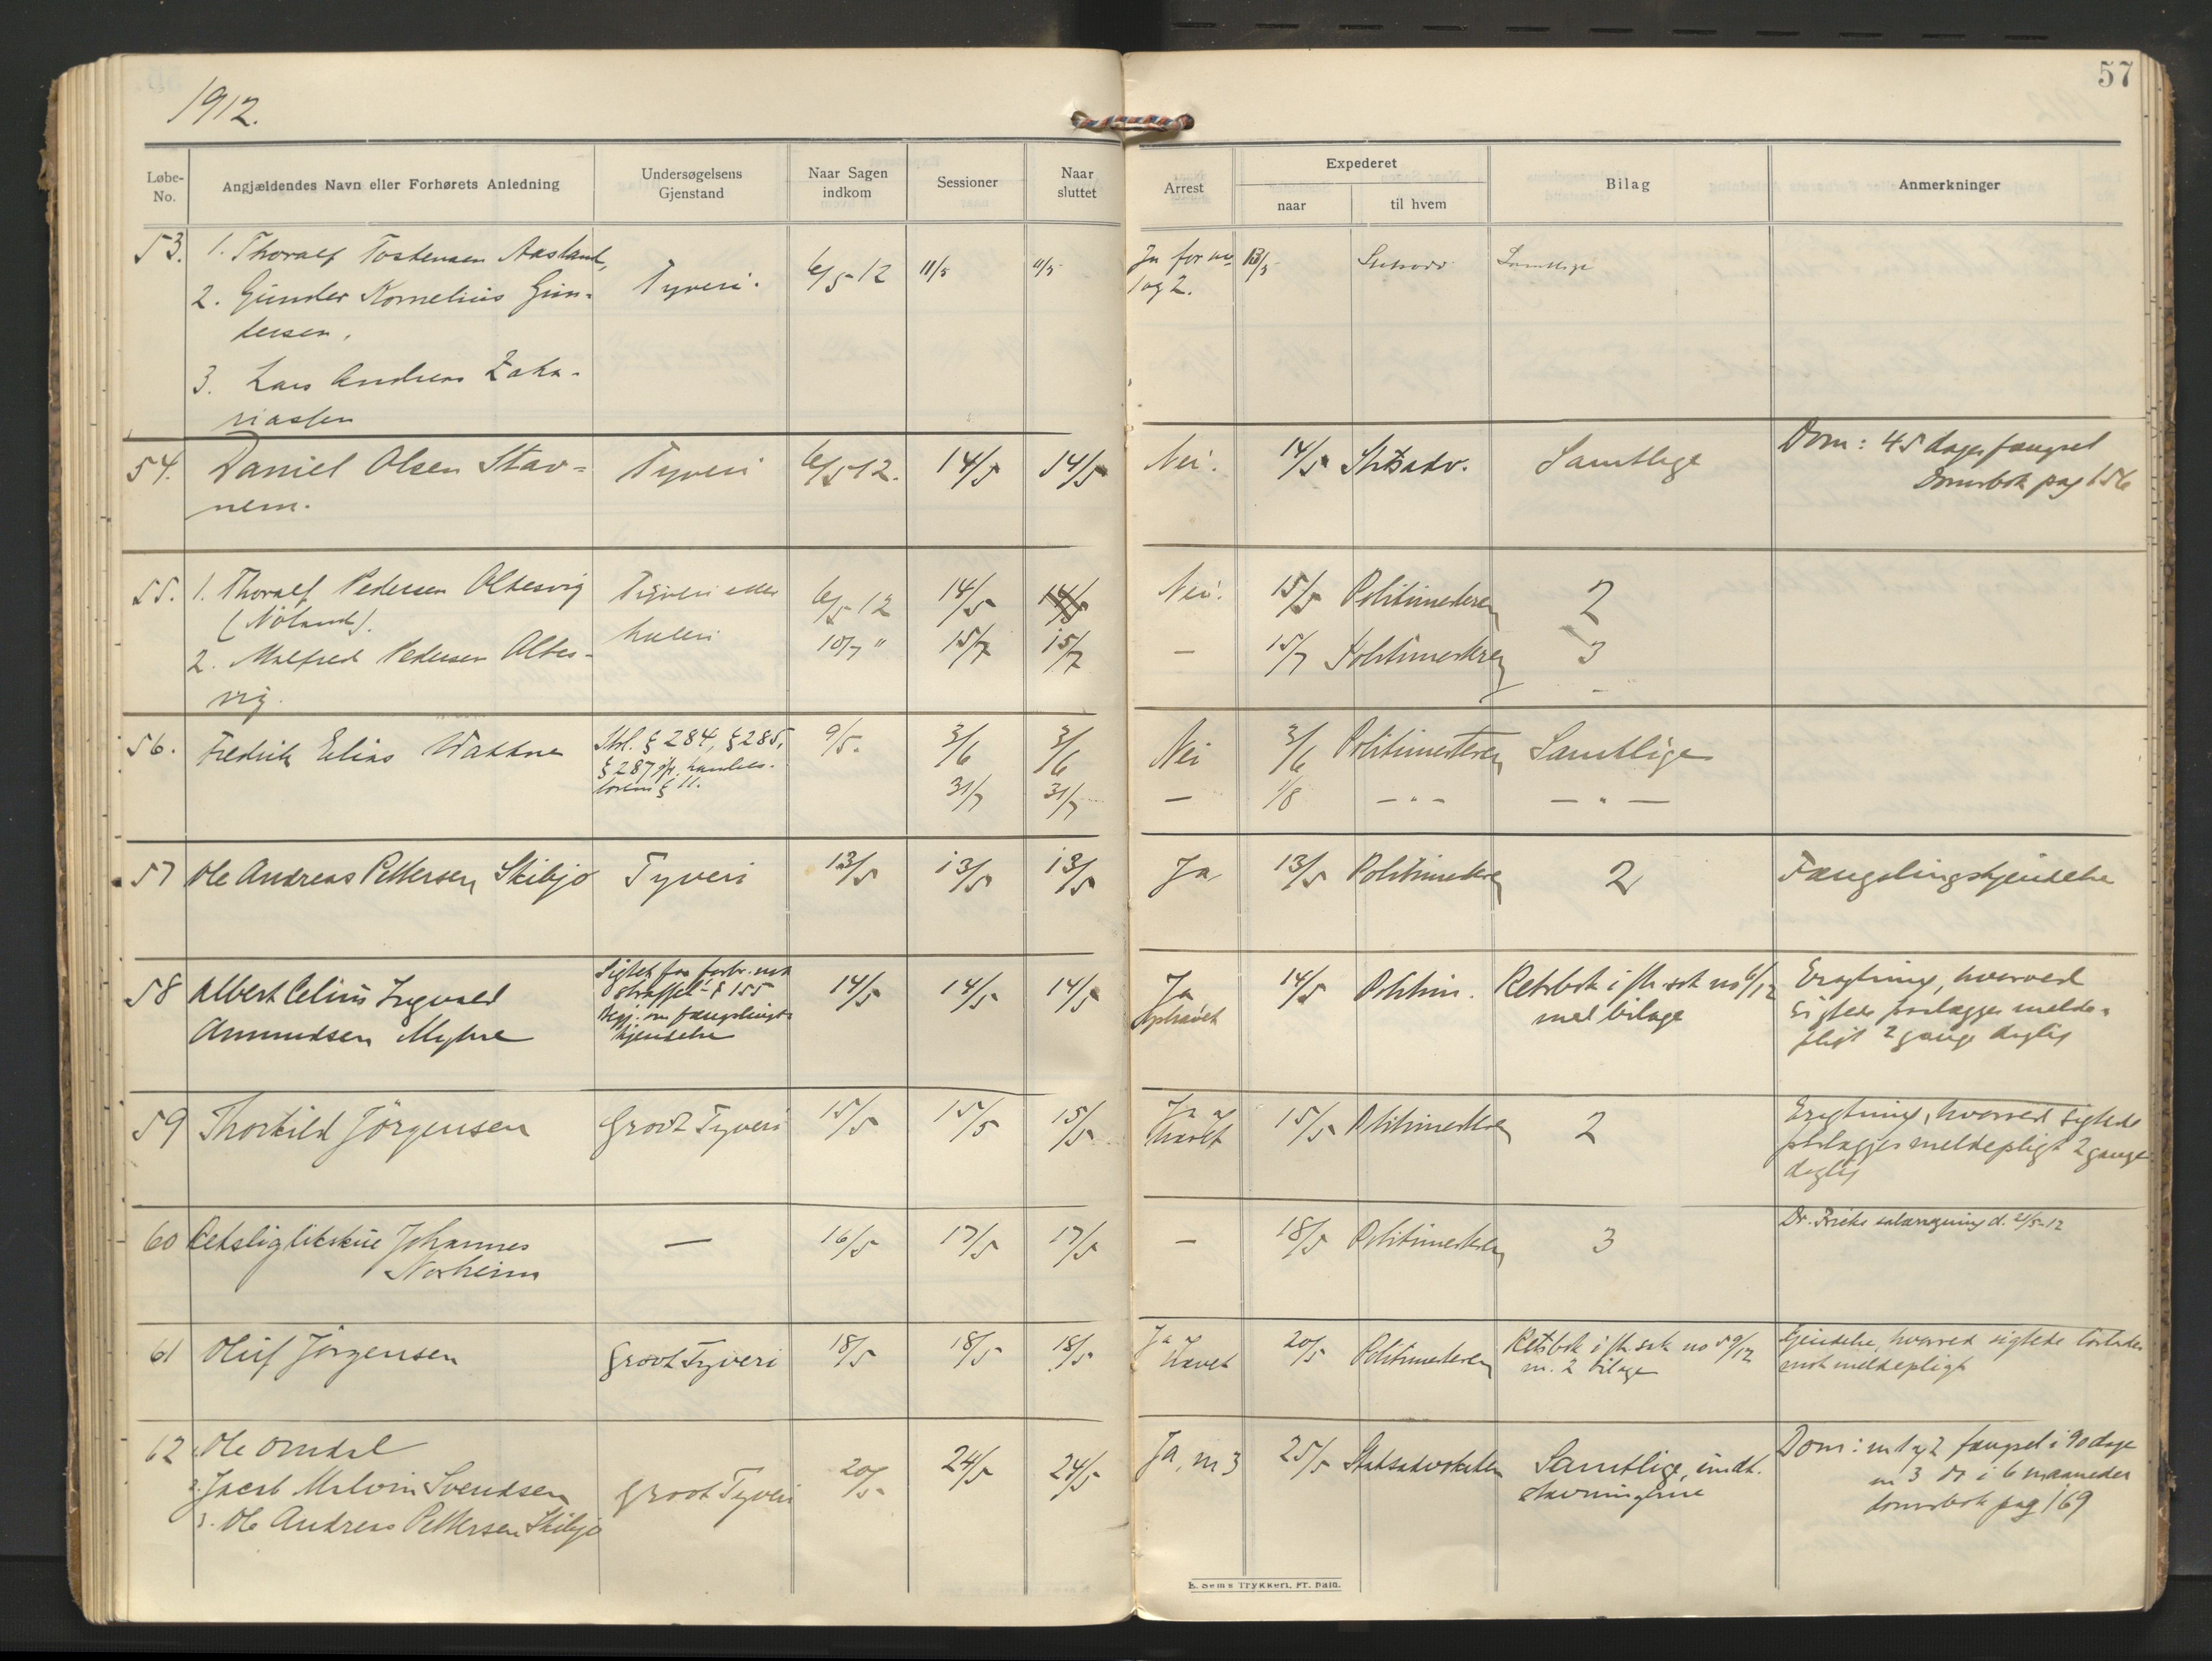 1912.
57
Løbe-No.
Angjældendes Navn eller Forhørets Anledning
Undersøgelsens Gjenstand
Naar Sagen indkom
Sessioner
Naar sluttet
Arrest
Expederet
naar
til hvem
Bilag
Anmerkninger
53. 1. Thoralf Tostensen Aasland, Tyveri. 6/5-12 11/5 11/5 Ja for no 13/5 Samtlige
2. Gunder Kornelius Gun- 1 og 2.
dersen.
3. Lars Andreas Zaka-
riassen
54. Daniel Olsen Stav- Tyveri 6/5-12. 14/5 14/5 Nei. 14/5 Statsadv. Samtlige Dom: 45 dages fængsel
nem. Domsbok pag 156
55. 1. Thoralf Pedersen Oltesvig Tyveri eller 6/5-12 14/5 14/5 Nei. 15/5 Politimesteren 2
(Nöland). hæleri
2. Malfred Pedersen Oltes- 10/7 " 15/7 15/7 — 15/7 Politimesteren 3
vig.
56. Fredrik Elias Watne Strl. § 284, § 285, 9/5. 3/6 3/6 Nei 3/6 Politimesteren Samtlige
§ 287 jfr. handels-
loven § 11. 31/7 31/7 — 1/8 — " — — " —
57 Ole Andreas Pettersen Skibjo Tyveri 13/5 13/5 13/5 Ja 13/5 Politimesteren 2 Fængslingskjendelse
58 Albert Celius Ingvald Sigtet for forbr. mot 14/5 14/5 14/5 Ja 14/5 Politim. Retsbok i str.sak no 6/12 Eragtning, hvorved
Amundsen Myhre straffel. § 155 ophævet med bilage sigtede paalægges melde-
Begj. om fængslings- pligt 2 gange daglig
kjendelse
59 Thorkild Jörgensen Grovt Tyveri 15/5 15/5 15/5 Ja 15/5 Politimesteren 2 Eragtning, hvorved sigtede
hævet paalægges meldepligt 2 gange
daglig
60 Retslig likskue Johannes — 16/5 17/5 17/5 — 18/5 Politimesteren 3
Norheim
61 Oluf Jörgensen Grovt Tyveri 18/5 18/5 18/5 Ja 20/5 Politimesteren Retsbok i str.sak no 59/12 Kjendelse, hvorved sigtede löslades
hævet m. 2 bilage mot meldepligt
62 1. Ole Omdal Grovt Tyveri 20/5 24/5 24/5 Ja, nr 3 25/5 Statsadvokaten Samtlige, undt. Dom: nr 1 og 2 fængsel i 90 dage
2. Jacob Malvin Svendsen stævningerne nr 3 do i 6 maaneder
3. Ole Andreas Pettersen Skibjo domsbok pag 169
E. Sem's Trykkeri, Fr.hald.